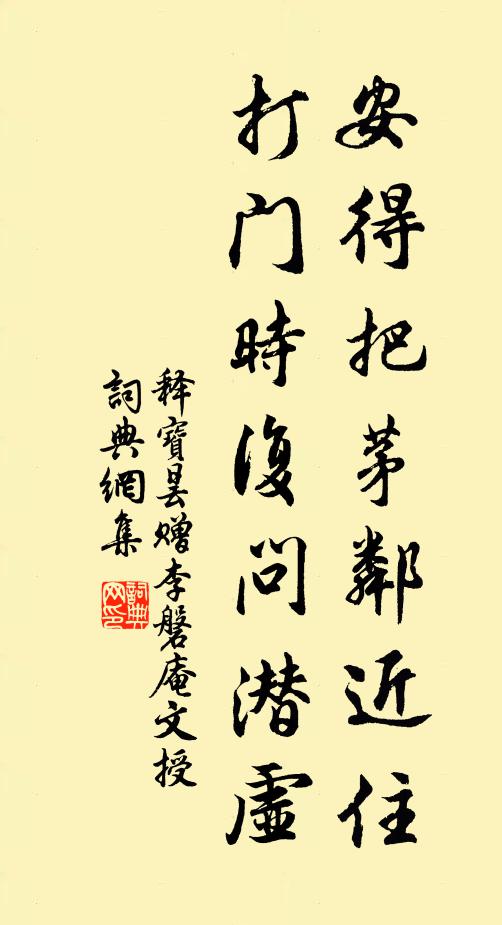 安得把茅鄰近住
打門時復問潛虛
释寶曇赠李磐庵文授
詞典網集
詞典
网印